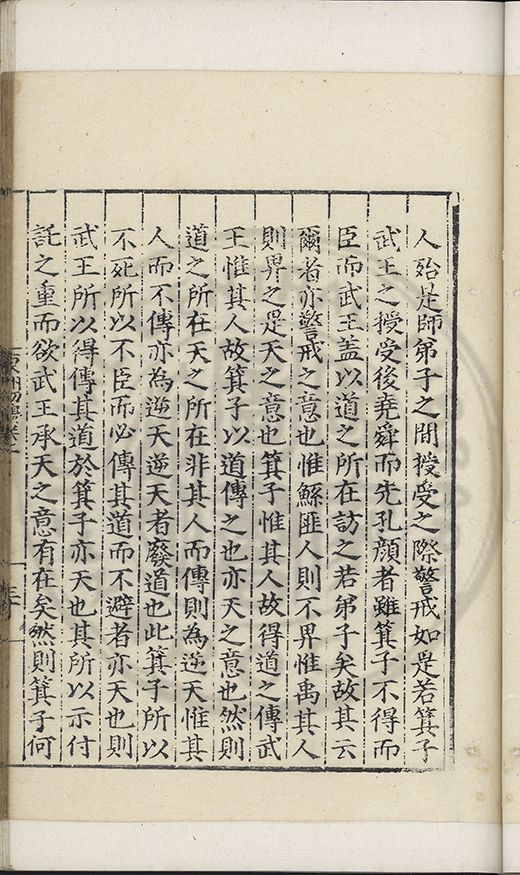 人殆是師弟子之間授受之際警戒如是若箕子
武王之授受後堯舜而先孔顔者雖箕子不得而
臣而武王盖以道之所在訪之若弟子矣故其云
爾者亦警戒之意也惟鯀匪人則不畀惟禹其人
則畀之是天之意也箕子惟其人故得道之傳武
王惟其人故箕子以道傳之也亦天之意也然則
道之所在天之所在非其人而傳則為逆天惟其
人而不傳亦為逆天逆天者廢道也此箕子所以
不死所以不臣而必傳其道而不避者亦天也則
武王所以得傳其道於箕子亦天也其所以示付
託之重而欲武王承天之意有在矣然則箕子何